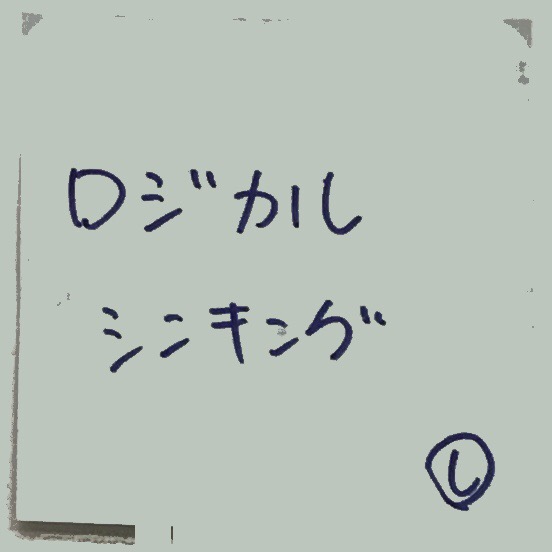 ロジカル
シンキング
し